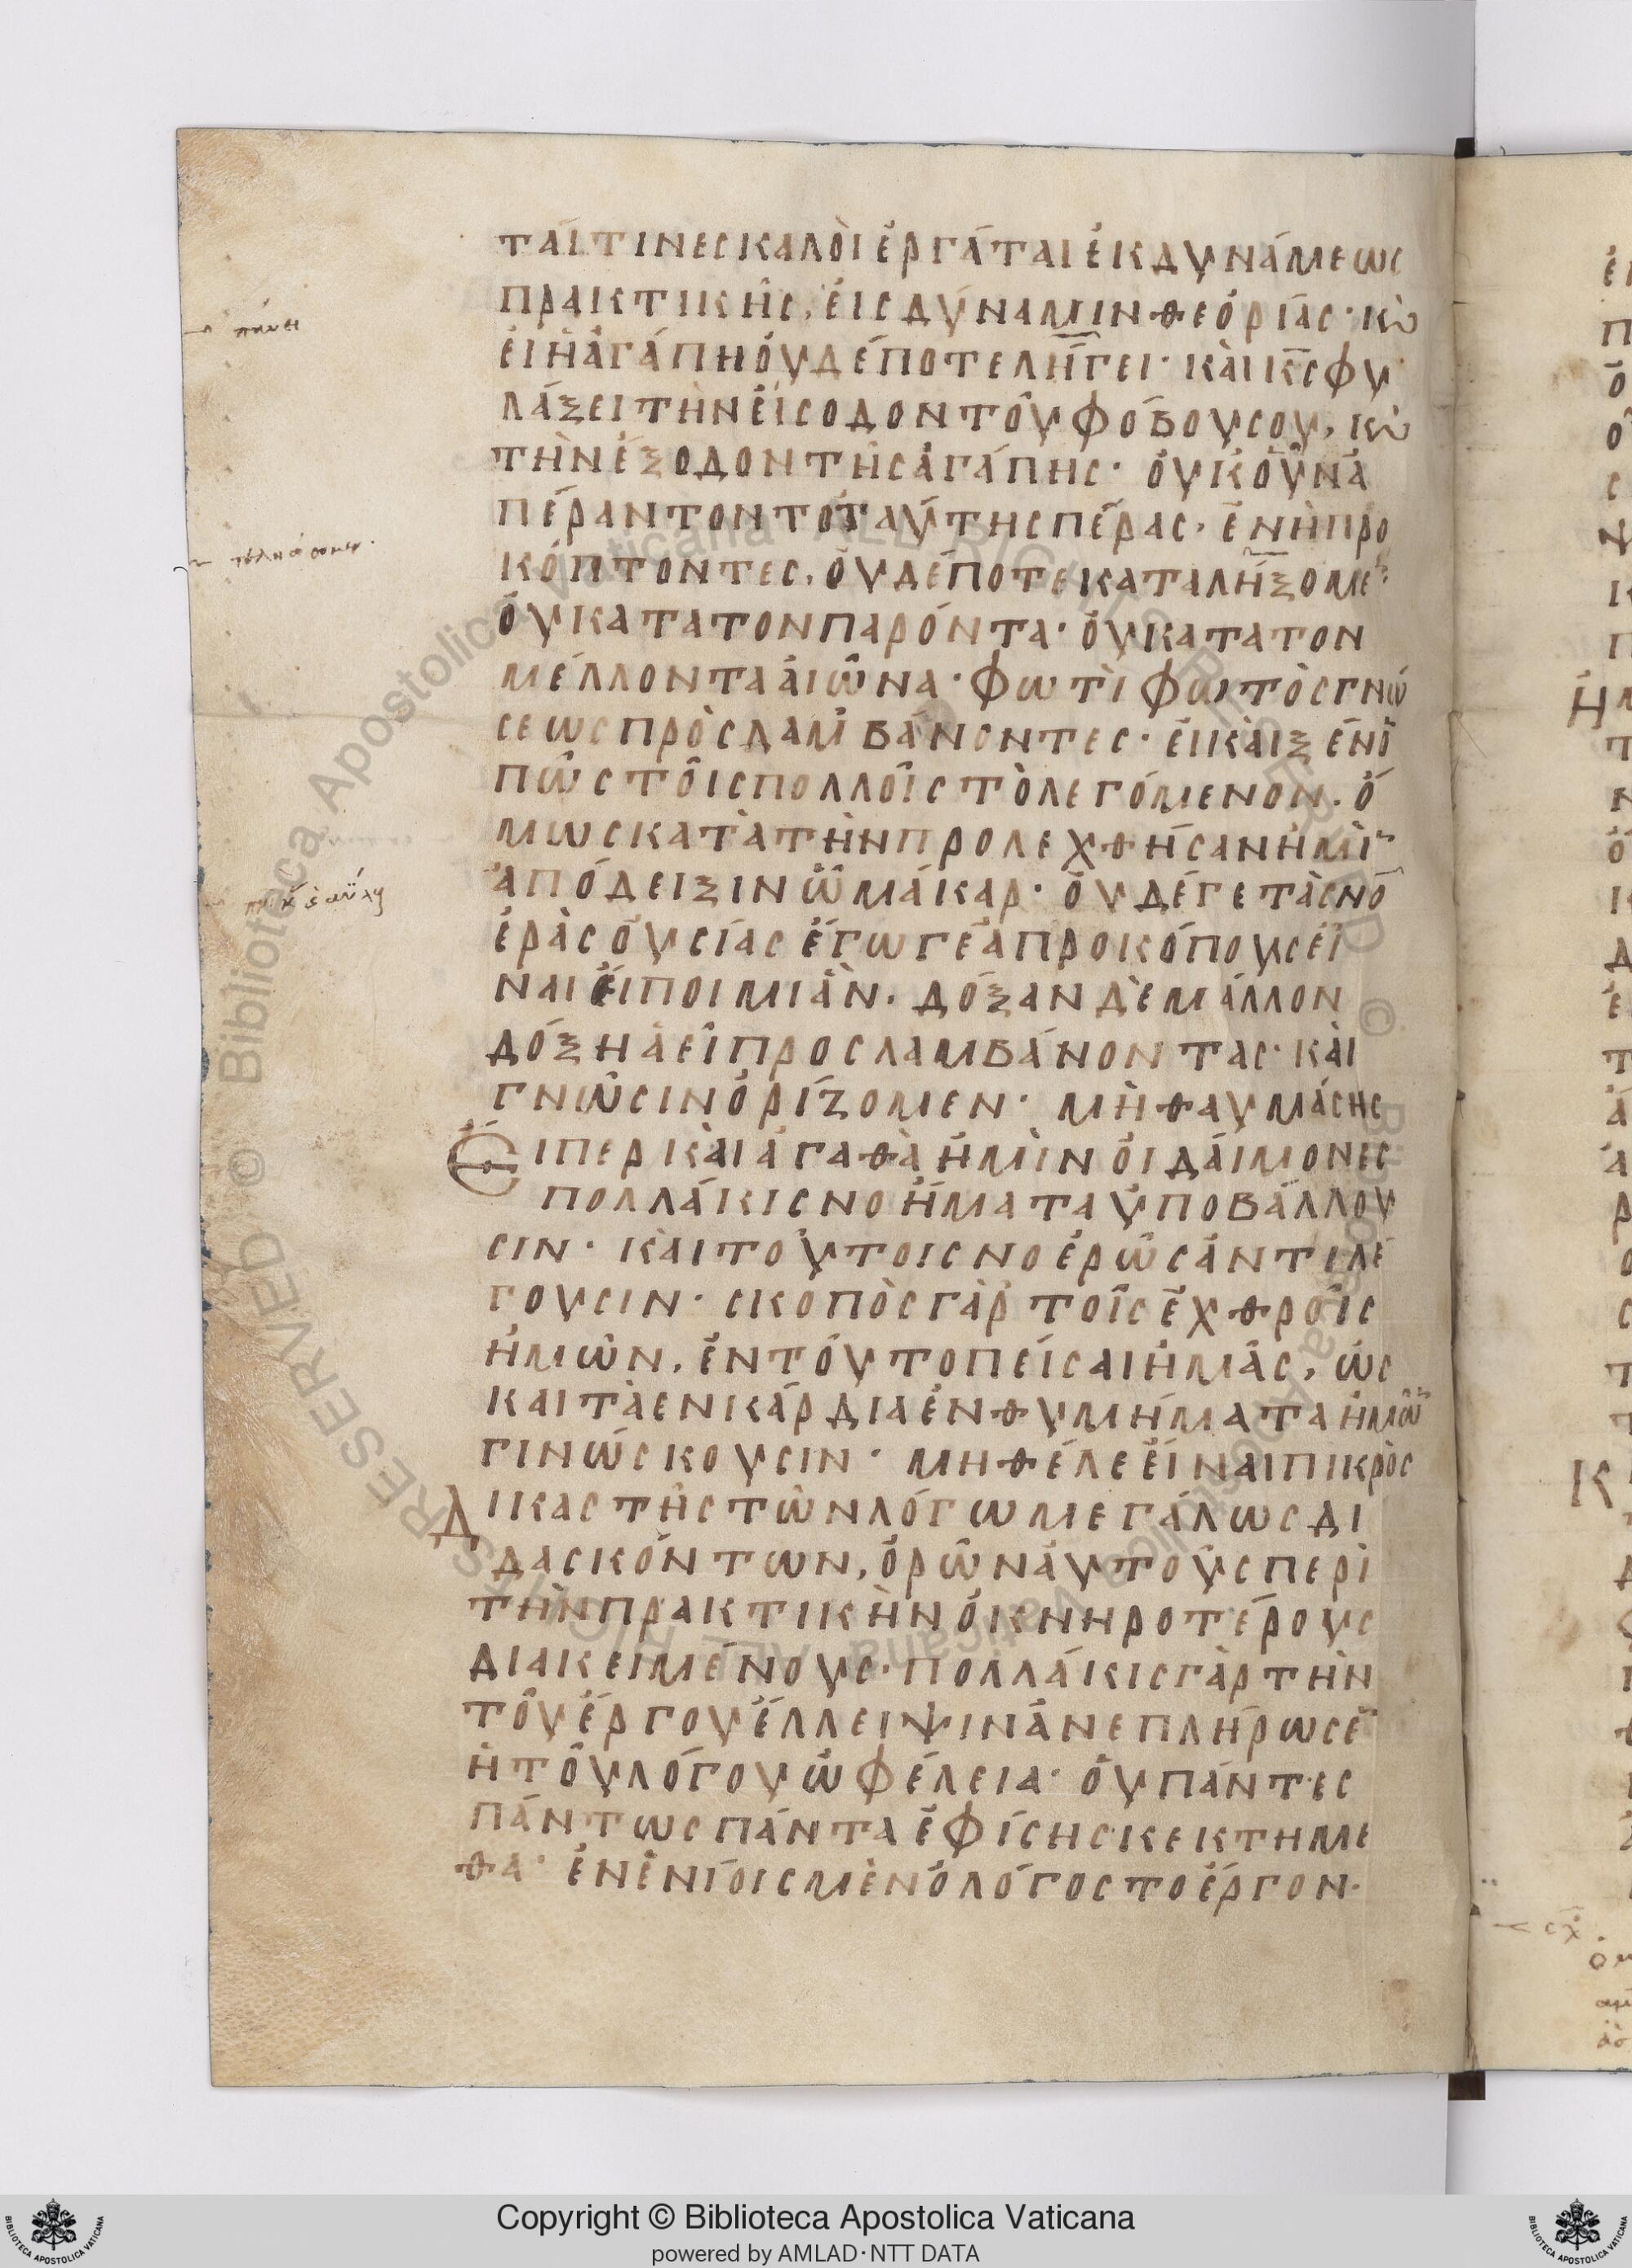 ΤΑΊ ΤΙΝΕC ΚΑΛΟῚ ἘΡΓΆΤΑΙ ἘΚ ΔΥΝΆΜΕωC
ΠΡΑΚΤΙΚΗ͂C, ἘΙC ΔΎΝΑΜΙΝ ΘΕΟΡΊΑC· Κ̀
ἘΙ Ἡ ἈΓΆΠΗ ὈΥΔΈΠΟΤΕ ΛΉΓΕΙ· ΚΑῚ Κ̅C̅ ΦΥ
ΛΆΞΕΙ ΤῊΝ ἘΊCΟΔΟΝ ΤΟΥ͂ ΦΌΒΟΥ CΟΥ, Κ̀
ΤῊΝ ἜΞΟΔΟΝ ΤΗ͂C ἈΓΆΠΗC· ὈΥΚΟΥ͂Ν Ἀ
ΠΈΡΑΝΤΟΝ ΤῸ ΤΑΎΤΗC ΠΈΡΑC, ἘΝ Ἡ ΠΡΟ
ΚΌΠΤΟΝΤΕC, ὈΥΔΈΠΟΤΕ ΚΑΤΑΛΉΞΟΜΕ
ὈΥ ΚΑΤΑ ΤΟΝ ΠΑΡΌΝΤΑ· ὈΥ ΚΑΤΑ ΤΟΝ
ΜΈΛΛΟΝΤΑ ἈΙῶΝΑ· ΦωΤῚ ΦωΤῸC ΓΝώ
CΕωC ΠΡῸCΛΑΜΒΆΝΟΝΤΕC· ἘΙ ΚΑῚ ΞΈΝΟ̄
ΠῶC ΤΟΙ͂C ΠΟΛΛΟΙ͂C ΤῸ ΛΕΓΌΜΕΝΟΝ. Ὅ
ΜωC ΚΑΤᾺ ΤῊΝ ΠΡΟΛΕΧΘΗ͂CΑΝ ἩΜῚ
ἈΠΌΔΕΙΞΙΝ ὦ ΜΆΚΑΡ· ὈΥΔΈΓΕ ΤᾺC ΝΟ
ἘΡᾺC ὈΥCΊΑC ἜΓωΓΕ ἈΠΡΟΚΌΠΟΥC ἘΙ͂
ΝΑΙ ἘΊΠΟΙΜΙ ἊΝ. ΔΌΞΑΝ ΔῈ ΜΆΛΛΟΝ
ΔΌΞΗ ἈΕῚ ΠΡΟCΛΑΜΒΆΝΟΝΤΑC· ΚΑῚ
ΓΝῶCΙΝ ὉΡΊΖΟΜΕΝ· ΜῊ ΘΑΥΜΆCΗC
ἘΊΠΕΡ ΚΑῚ ἈΓΑΘᾺ ἩΜῚΝ ὉΙ ΔΑΊΜΟΝΕC
ΠΟΛΛΆΚΙC ΝΟΉΜΑΤΑ ὙΠΟΒΆΛΛΟΥ
CΙΝ· ΚΑῚ ΤΟΎΤΟΙC ΝΟΕΡῶC ἈΝΤΙΛΈ
ΓΟΥCΙΝ· CΚΟΠῸC ΓᾺΡ ΤΟΙ͂C ἘΧΘΡΟΙ͂C
ἩΜῶΝ, ἘΝ ΤΟΎΤΟ ΠΕΊCΑΙ ἩΜΑ͂C, ὡC
ΚΑΙ ΤᾺ ΕΝ ΚΑΡΔΊΑ ἘΝΘΥΜΉΜΑΤΑ ἩΜῶ
ΓΙΝώCΚΟΥCΙΝ· ΜΗ ΘΈΛΕ ἘΊΝΑΙ ΠΙΚΡῸC
ΔΙΚΑCΤΗ͂C ΤῶΝ ΛΌΓω ΜΕΓΆΛωC ΔΙ
ΔΑCΚΌΝΤωΝ, ὉΡῶΝ ἈΥΤΟῪC ΠΕΡῚ
ΤῊΝ ΠΡΑΚΤΙΚῊΝ ὈΚΝΗΡΟΤΈΡΟΥC
ΔΙΑΚΕΙΜΈΝΟΥC· ΠΟΛΛΆΚΙC ΓᾺΡ ΤῊΝ
ΤΟΥ͂ ἜΡΓΟΥ ἜΛΛΕΙΨΙΝ ἈΝΕΠΛΉΡωCΕ̄
Ἡ ΤΟΥ͂ ΛΌΓΟΥ ὠΦΈΛΕΙΑ· ὈΥ ΠΆΝΤΕC
ΠΆΝΤωC ΠΆΝΤΑ ἘΦΊCΗC ΚΕΚΤΗΜΕ
ΘΑ· ἘΝ ἘΝΊΟΙC ΜῈΝ Ὁ ΛΌΓΟC ΤΟ ἜΡΓΟΝ·
Copyright © Biblioteca Apostolica Vaticana
powered by AMLAD·NTT DATA